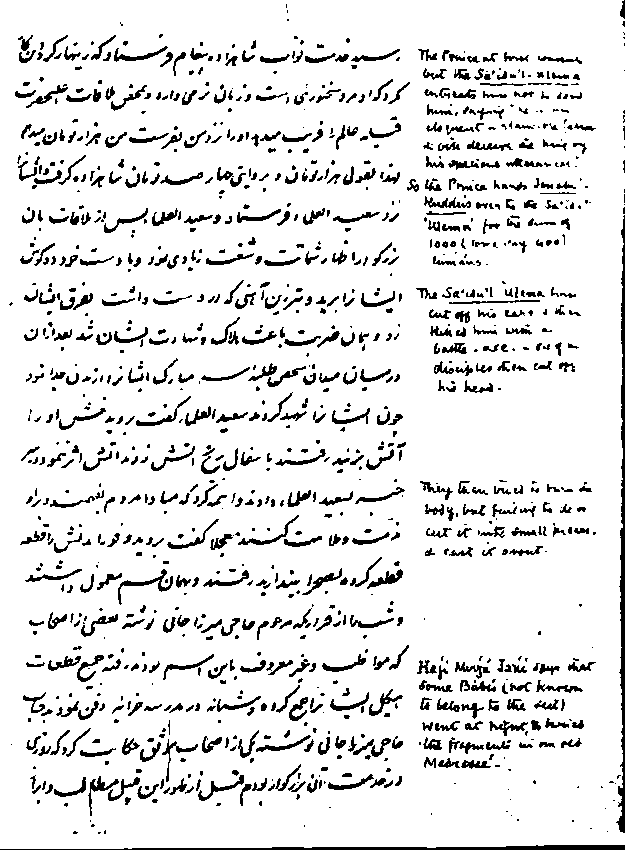 رسید خدمت نواب شاهزاده پیغام فرستاد که زینهار
کرد که او مرد سخنوری است و زبان نرمی دارد و بمحض ملاقات اعلیحضرت
قبله عالم را فریب میدهد او را نزد من بفرست من هزار تومان میدهم
لهذا بقول هزار تومان و بروایتی چهار صد تومان شاهزاده گرفت و ایشانرا
نزد سعید العلماء فرستاد و سعید العلما پس از ملاقات بان
بزرگوار اظهار شماتت و شنعت زیادی نمود و با دست خود دو گوش
ایشانرا برید و تبرزین آهنی که در دست داشت بفرق ایشان
زد و بهمان ضربت باعث هلاک و شهادت ایشان شد بعد از آن
در میان میدان شخص طلبه سر مبارک ایشانرا از بدن جدا نمود
چون ایشانرا شهید کردند سعید العلما گفت بروید نعش او را
آتش بزنید رفتند با
خبر بسعید العلماء دادند واهمه کرد که مبادا مردم بفهمند و او را
مذمت و ملامت کنند عجلا گفت بروید و فورا بدنش را قطعه
قطعه کرده بصحرا بیندازید رفتند و بهمان قسم معمول داشتند
و شب بنا از قراریکه مرحوم حاجی میرزا جانی نوشته بعضی از اصحاب
که مواظب و غیر معروف باین اسم بودند رفته جمع قطعات
هیکل ایشانرا جمع کرده و شبانه در مدرسه خرابه دفن نمودند جناب
حاجی میرزا جانی نوشته یکی از اصحاب موثق حکایت کرد که روزی
در خدمت آن بزرگوار بودم قبل از ظهور این قبیل مطالب
The Prince at first consents
but the Sa'idu'l-'Ulema
entreats him not to send
him, saying "he is an
eloquent
& will deceive the king by
his specious utterances."
So the Prince hands Jenab-i-
Kuddús over to the Sa'idu'l-
'Ulema for the sum of
1000 (some say 400)
túmáns.
The Sa'idu'l 'Ulema first
cut off his ears & then
killed him with a
battle-axe. - one of his
disciples then cut off
his head.
They then tried to burn the
body, but failing to do so
cut it into small pieces,
& cast it about.
Haji Mirza Jani says that
some Bábis (not known
to belong to the sect)
went at night, & buried
'the fragments in an old
Medressé'.